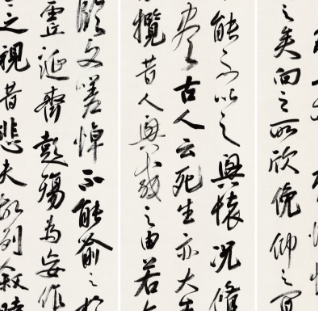 之矣向之所欣俛仰之間
能不以之興懷況修
盡古人云死生亦大矣
攬昔人興感之由若合
臨文嗟悼不能喻之於
虛誕齊彭殤為妄作
之視昔悲夫故列敘時